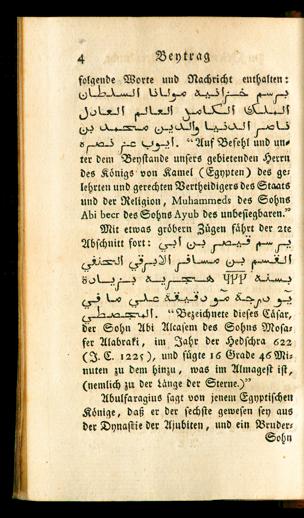 4 Beytrag
folgende Worte und Nachricht enthalten:
برسم خزانية مولانا السلطان
الملك الكامل العالم العادل
ناصر الدنيا والدين محمد بن
ايوب عز نصره. “Auf Befehl und un-
ter dem Beystande unsers gebietenden Herrn
des Königs von Kamel (Egypten) des ge-
lehrten und gerechten Vertheidigers des Staats
und der Religion, Muhammeds des Sohns
Abi becr des Sohns Ayub des unbesiegbaren.”
Mit etwas gröbern Zügen fährt der 2te
Abschnitt fort: برسم قيصر بن ابي
القسم بن مسافر الابرقي الحنفي
بسنة هجرية بزيادة
يو درجة مو دقيقة علي ما في
المجصطي. “Bezeichnete dieses Cäsar,
der Sohn Abi Alcasem des Sohns Mosa-
fer Alabraki, im Jahr der Hedschra 622
(J. C. 1225), und fügte 16 Grade 46 Mi-
nuten zu dem hinzu, was im Almagest ist,
(nemlich zu der Länge der Sterne.)”
Abulfaragius sagt von jenem Egyptischen
Könige, daß er der sechste gewesen sey aus
der Dynastie der Ajubiten, und ein Bruder-
Sohn